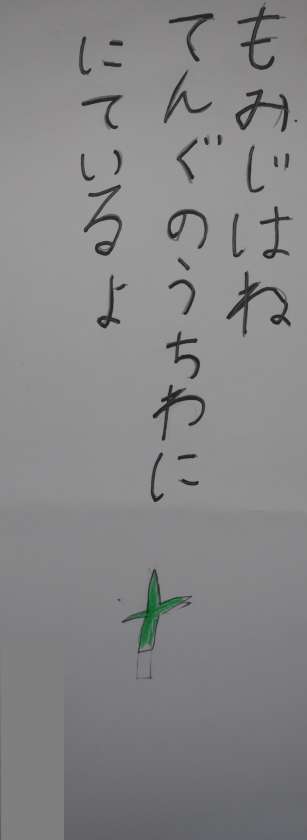 もみじはね
てんぐのうちわに
にているよ